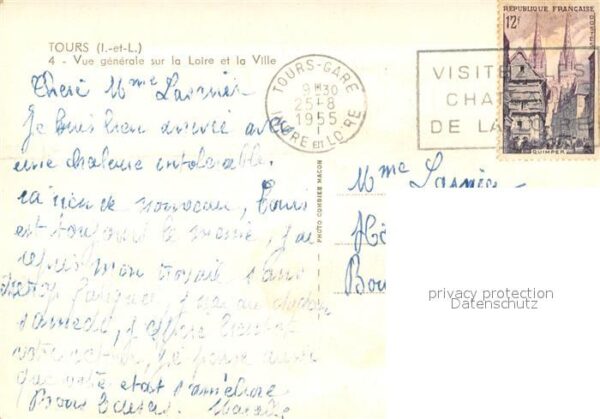 TOURS (I.-et-L.)
4 - Vue générale sur la Loire et la Ville
RÉPUBLIQUE FRANÇAISE
12F
POSTES
QUIMPER
TOURS-GARE
9H30
25-8
1955
INDRE et LOIRE
VISITEZ LES
CHA
DE LA
PHOTO COMBIER MACON
Chère Mme Lasnier
Je suis bien arrivé avec
une chaleur intolérable.
rien de nouveau, Tours
est toujours le même, j'ai
repris mon travail sans
samedi, j'espère
votre et je pense aussi
que votre état s'améliore
Bons baisers.
Mme Lasnier
Hô
Bou
privacy protection
Datenschutz